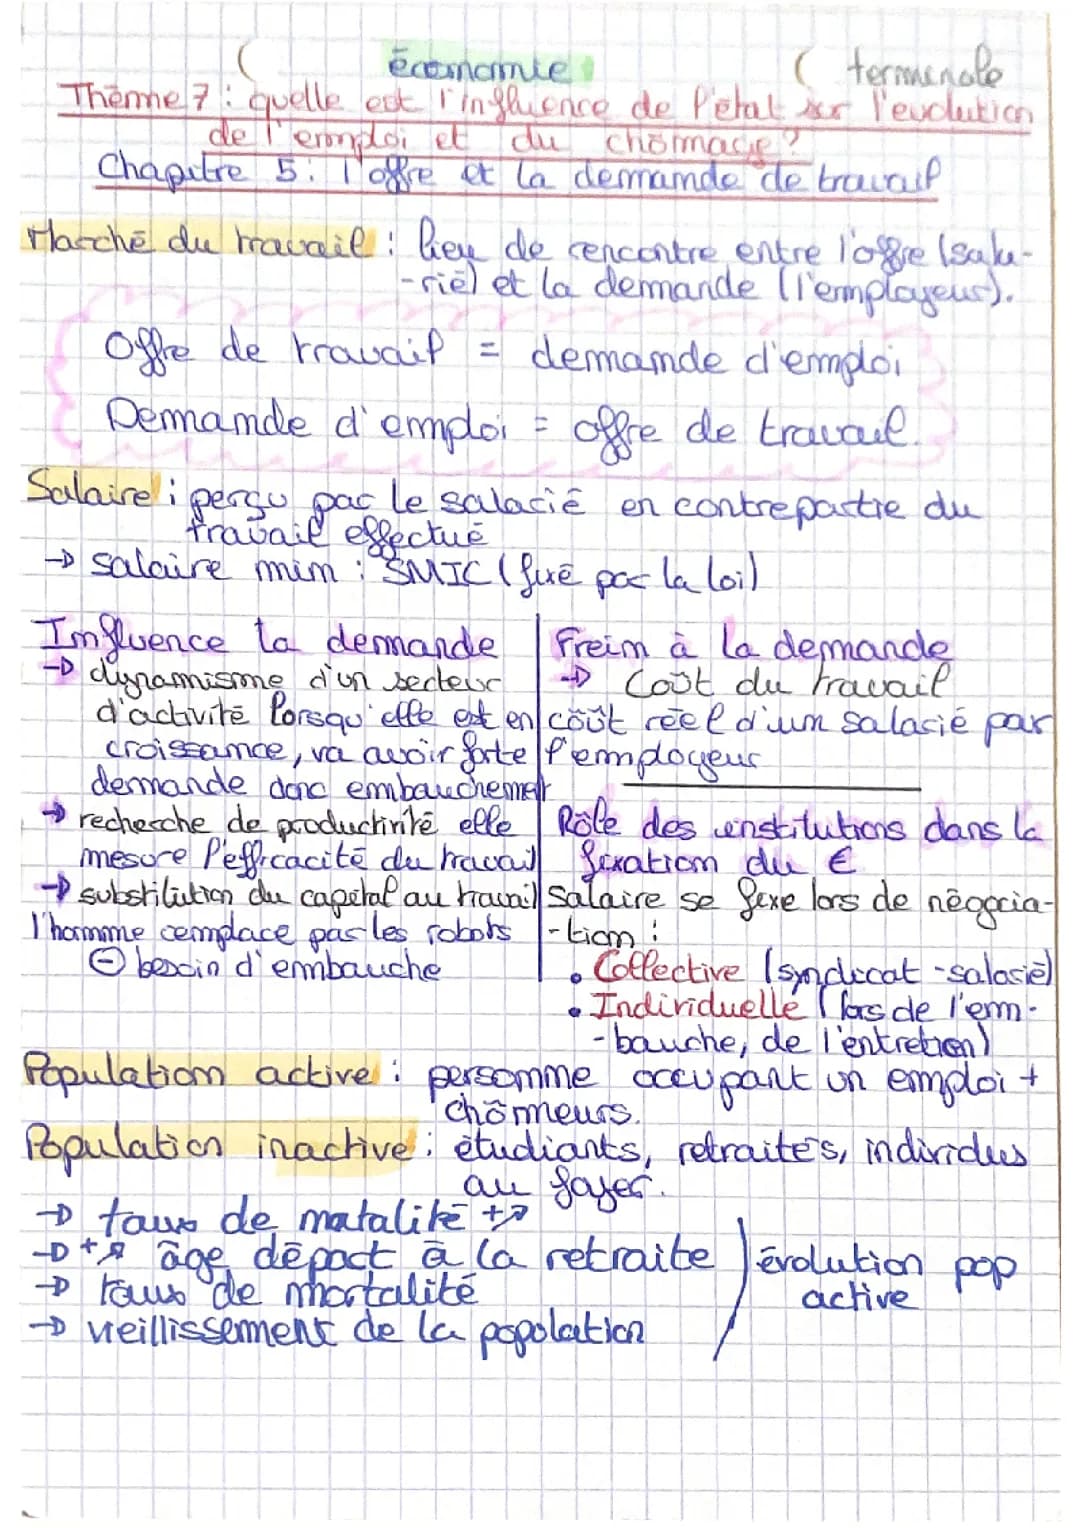 économie
terminale
Thème 7 : quelle est l'influence de l'état sur l'evolution
de l'emploi et du chômage ?
Chapitre 5 : l'offre et la demande de travail
Marché du travail : lieu de rencontre entre l'offre (sala-
-rié) et la demande (l'employeur).
Offre de travail = demande d'emploi
Demande d'emploi = offre de travail.
Salaire : perçu par le salarié en contrepartie du
travail effectué
→ salaire min : SMIC (fixé par la loi)
Influence la demande
→ dynamisme d'un secteur
d'activité lorsqu'elle est en
croissance, va avoir forte
demande donc embauchement
→ recherche de productivité elle
mesure l'efficacité du travail
→ substitution du capital au travail
l'homme remplace par les robots
⊖ besoin d'embauche
Frein à la demande
→ Coût du travail
coût réel d'un salarié par
l'employeur
Rôle des institutions dans la
fixation du €
Salaire se fixe lors de négocia-
-tion :
• Collective (syndicat - salarié)
• Individuelle (lors de l'em-
-bauche, de l'entretien)
Population active : personne occupant un emploi +
chômeurs.
Population inactive : étudiants, retraités, individus
au foyer.
→ taux de natalité +↗
→ +↗ âge départ à la retraite
→ taux de mortalité
→ vieillissement de la popolation
évolution pop
active